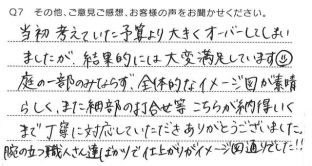 Q7 その他、ご意見ご感想、お客様の声をお聞かせください。
当初考えていた予算より大きくオーバーしてしまい
ましたが、結果的には大変満足しています
庭の一部のみならず、全体的なイメージ図が素晴
らしく、また細部の打合せ等こちらが納得いく
まで丁寧に対応していただきありがとうございました。
腕の立つ職人さん達ばかりで仕上がりがイメージ図通りでした!!